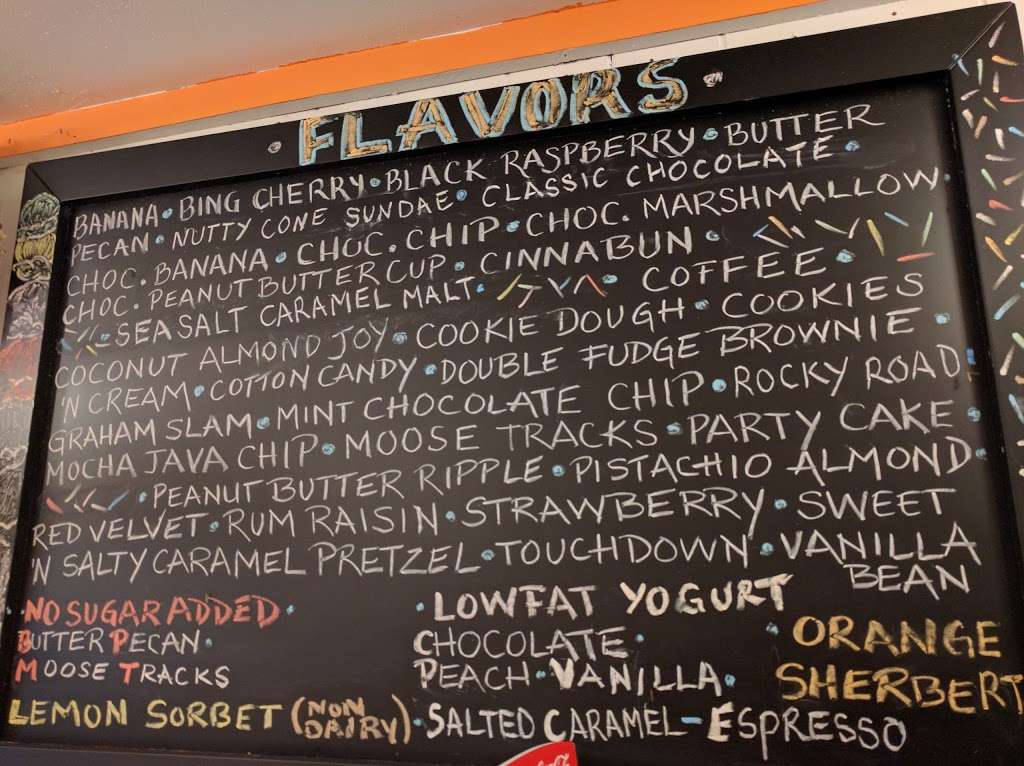 FLAVORS
BANANA • BING CHERRY • BLACK RASPBERRY • BUTTER
PECAN • NUTTY CONE SUNDAE • CLASSIC CHOCOLATE •
CHOC. BANANA • CHOC. CHIP • CHOC. MARSHMALLOW •
CHOC. PEANUT BUTTER CUP • CINNABUN •
• SEA SALT CARAMEL MALT • COFFEE •
COCONUT ALMOND JOY • COOKIE DOUGH • COOKIES
'N CREAM • COTTON CANDY • DOUBLE FUDGE BROWNIE •
GRAHAM SLAM • MINT CHOCOLATE CHIP • ROCKY ROAD •
MOCHA JAVA CHIP • MOOSE TRACKS • PARTY CAKE •
• PEANUT BUTTER RIPPLE • PISTACHIO ALMOND •
RED VELVET • RUM RAISIN • STRAWBERRY • SWEET
'N SALTY CARAMEL PRETZEL • TOUCHDOWN • VANILLA
BEAN
• NO SUGAR ADDED •
BUTTER PECAN •
MOOSE TRACKS
LEMON SORBET (NON DAIRY)
• LOWFAT YOGURT
CHOCOLATE •
PEACH • VANILLA •
• SALTED CARAMEL - ESPRESSO
• ORANGE
SHERBERT